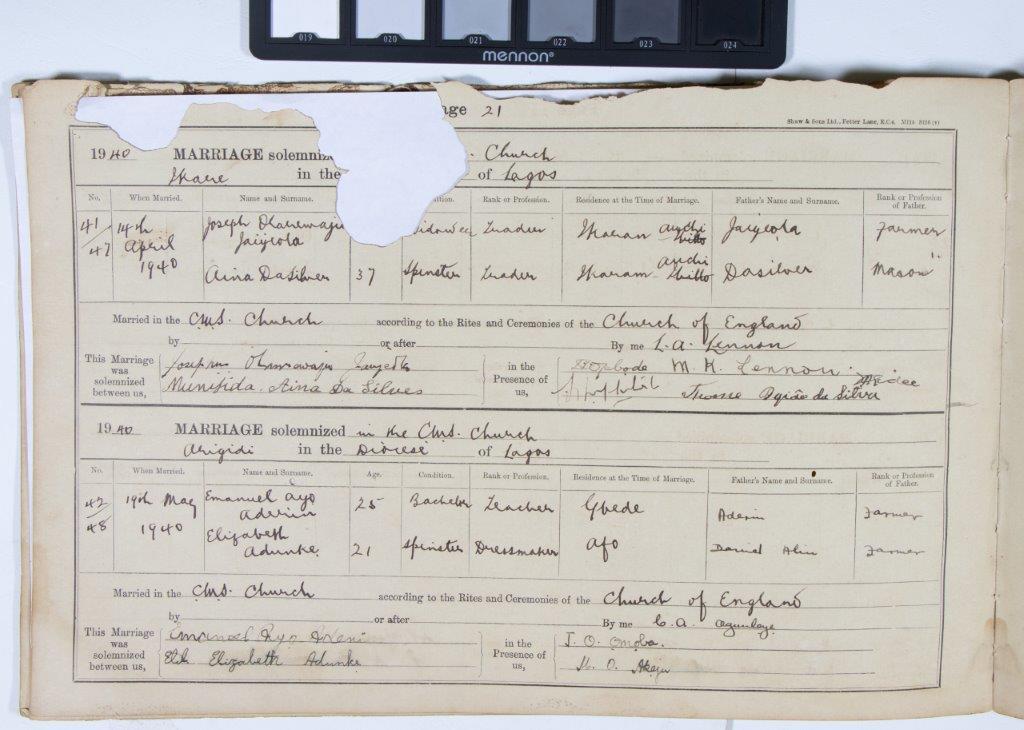 019 020 021 022 023 024
mennon®
age 21
Shaw & Sons Ltd., Fetter Lane, E.C.4.
1940 MARRIAGE solemniz Church
Ikare in the of Lagos
No. When Married. Name and Surname. dition. Rank or Profession. Residence at the Time of Marriage. Father's Name and Surname. Rank or Profession of Father.
41/47 14th April 1940 Joseph Olanrewaju Jaiyeola idower Trader Ikaram Jaiyeola Farmer
Aina DaSilver 37 Spinster Trader Ikaram Dasilver Mason
Married in the C.M.S. Church according to the Rites and Ceremonies of the Church of England
by or after By me L. A. Lennon
This Marriage was solemnized between us, Josephus Olanrewaju
Aina Da Silver
in the Presence of us, M. K. Lennon
da Silva
1940 MARRIAGE solemnized in the C.M.S. Church
Arigidi in the Diocese of Lagos
No. When Married. Name and Surname. Age. Condition. Rank or Profession. Residence at the Time of Marriage. Father's Name and Surname. Rank or Profession of Father.
42/48 19th May 1940 Emanuel Ayo Aderin 25 Bachelor Teacher Gbede Aderin Farmer
Elizabeth Adunke 21 Spinster Dressmaker Afo Daniel Farmer
Married in the C.M.S. Church according to the Rites and Ceremonies of the Church of England
by or after By me
This Marriage was solemnized between us, Emanuel Ayo
Elizabeth Adunke
in the Presence of us, J. O. Omoba.